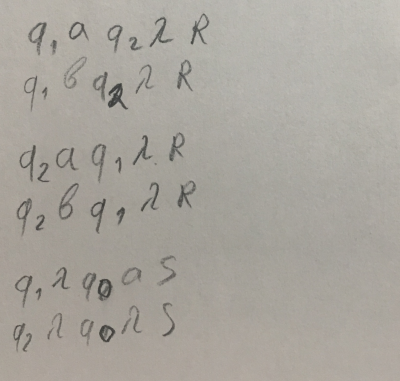 q₁ a q₂ λ R
q₁ в q₂ λ R
q₂ a q₁ λ R
q₂ в q₁ λ R
q₁ λ q₀ a S
q₂ λ q₀ λ S